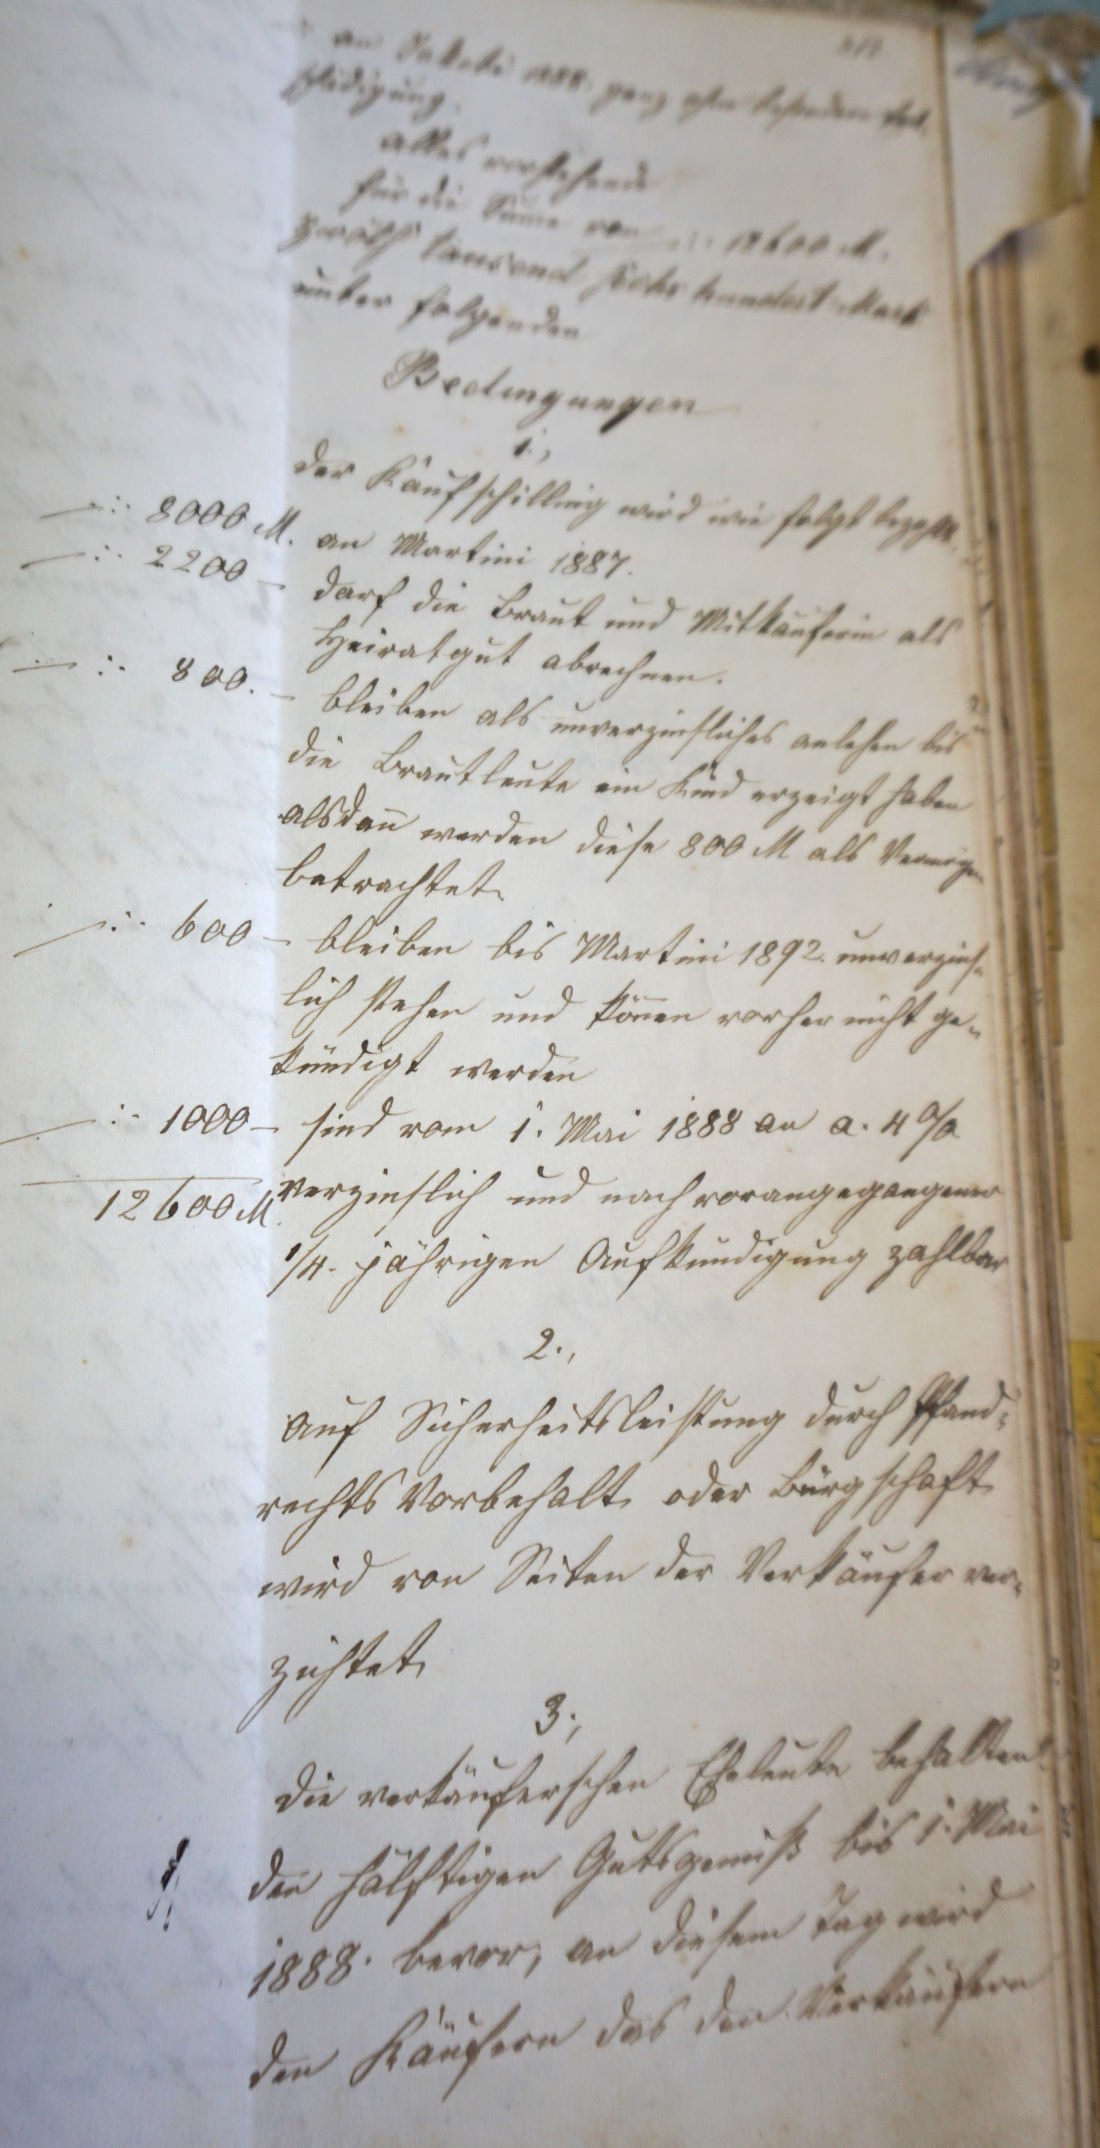 an Jakobi 1888. ganz ohne besondere Ent-
schädigung.
alles vorstehende
für die Suma von –:· 12600 M.
zwölf tausend sechs hundert Mark
unter folgenden
Bedingungen
1.,
der Kaufschilling wird wie folgt bezahlt.
–:· 8000 M. an Martini 1887.
–:· 2200 – darf die Braut und Mitkäuferin als
Heiratgut abrechnen.
–:· 800. – bleiben als unverzinsliches anlehen bis
die Brautleute ein Kind erzeigt haben
alsdan̄ werden diese 800 M als Vermögen
betrachtet.
–:· 600 – bleiben bis Martini 1892. unverzins-
lich stehen und kön̄en vorher nicht ge-
kündigt werden
–:· 1000 – sind vom 1. Mai 1888 an a. 4 %
12600 M. verzinslich und nach vorangegangener
1/4. jährigen Aufkündigung zahlbar
2.,
Auf Sicherheitsleistung durch Pfand-
rechts Vorbehalt oder Bürgschaft
wird von Seiten der Verkäufer ver-
zichtet.
3.,
die verkäuferschen Eheleute behalten
den hälftigen Gutsgenuß bis 1. Mai
1888. bevor, an diesem Tag wird
den Käufern das den Verkäufern